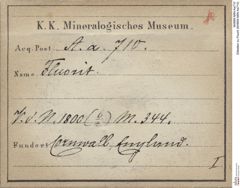 K. K. Mineralogisches Museum.
Acq. Post A. a. 710.
Name Fluorit.
V. d. N. 1800 M. 344.
Fundort Cornwall, England.
I